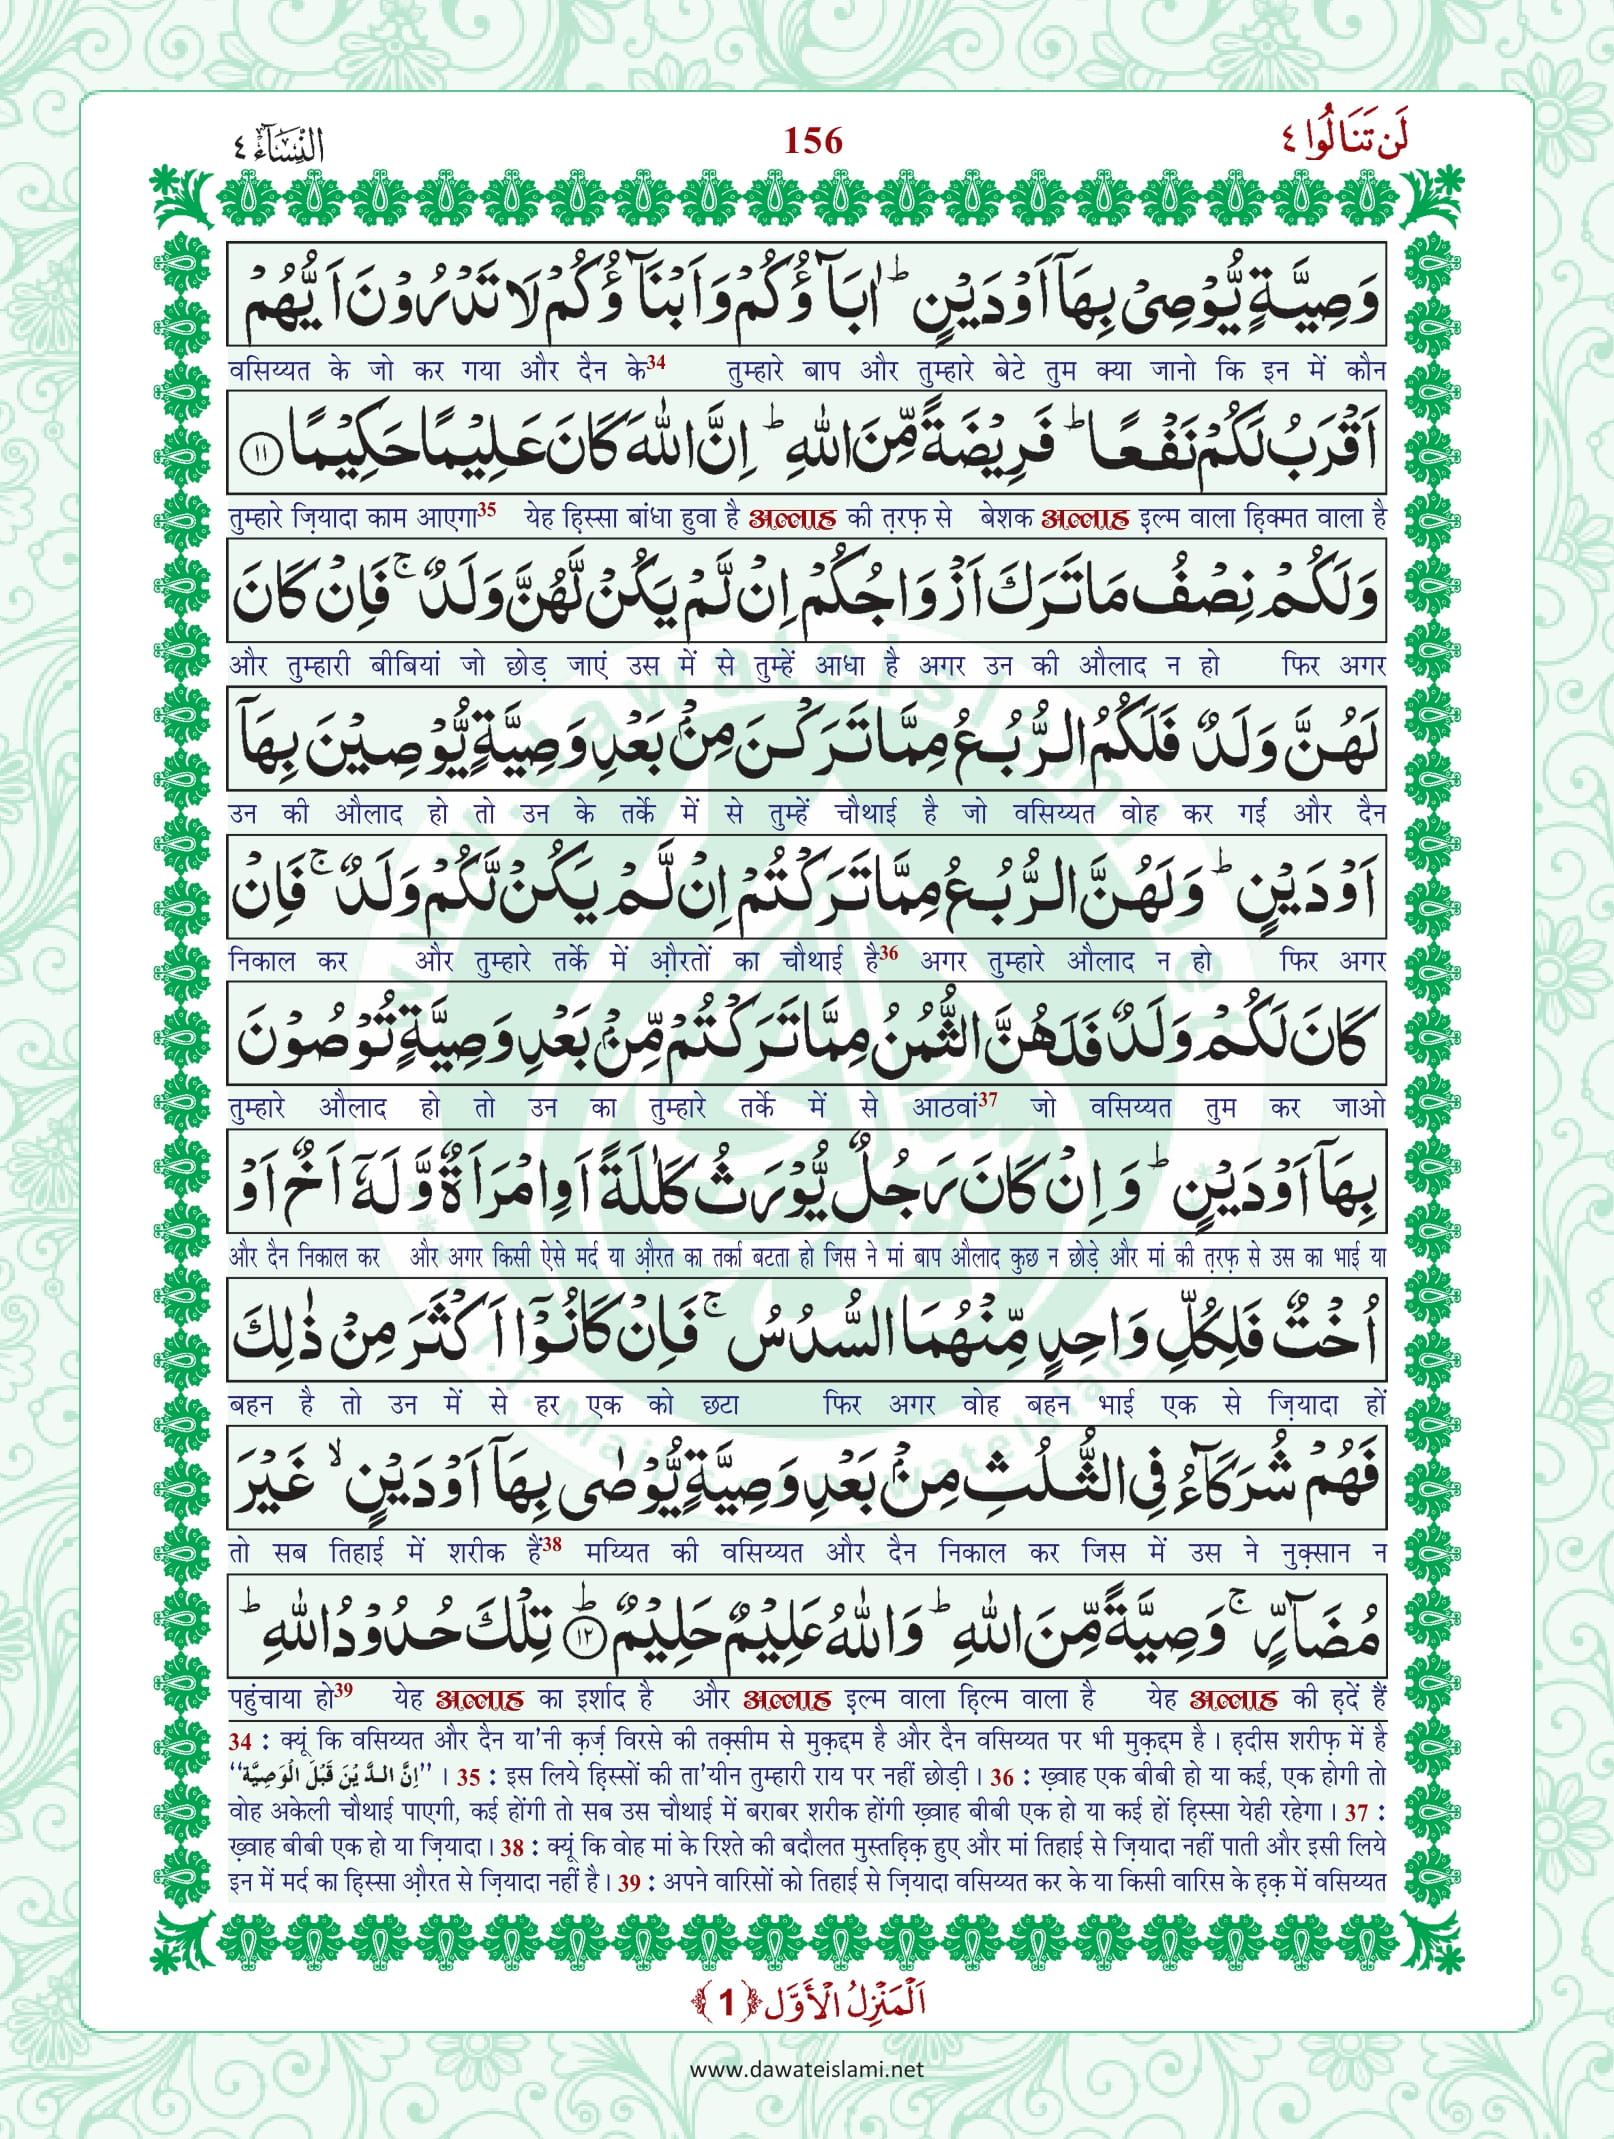 النِّسَآء ٤
156
لَن تَنَالُوا ٤
وَصِيَّةٍ يُّوْصِيْ بِهَآ اَوْ دَيْنٍ ؕ اٰبَآؤُكُمْ وَاَبْنَآؤُكُمْ لَا تَدْرُوْنَ اَيُّهُمْ
वसिय्यत के जो कर गया और दैन के34 तुम्हारे बाप और तुम्हारे बेटे तुम क्या जानो कि इन में कौन
اَقْرَبُ لَكُمْ نَفْعًا ؕ فَرِيْضَةً مِّنَ اللّٰهِ ؕ اِنَّ اللّٰهَ كَانَ عَلِيْمًا حَكِيْمًا ۝۱۱
तुम्हारे ज़ियादा काम आएगा35 येह हि़स्सा बांधा हुवा है अल्लाह की त़रफ़ से बेशक अल्लाह इल्म वाला हि़क्मत वाला है
وَلَكُمْ نِصْفُ مَا تَرَكَ اَزْوَاجُكُمْ اِنْ لَّمْ يَكُنْ لَّهُنَّ وَلَدٌ ۚ فَاِنْ كَانَ
और तुम्हारी बीबियां जो छोड़ जाएं उस में से तुम्हें आधा है अगर उन की औलाद न हो फिर अगर
لَهُنَّ وَلَدٌ فَلَكُمُ الرُّبُعُ مِمَّا تَرَكْنَ مِنْۢ بَعْدِ وَصِيَّةٍ يُّوْصِيْنَ بِهَآ
उन की औलाद हो तो उन के तर्के में से तुम्हें चौथाई है जो वसिय्यत वोह कर गईं और दैन
اَوْ دَيْنٍ ؕ وَلَهُنَّ الرُّبُعُ مِمَّا تَرَكْتُمْ اِنْ لَّمْ يَكُنْ لَّكُمْ وَلَدٌ ۚ فَاِنْ
निकाल कर और तुम्हारे तर्के में औ़रतों का चौथाई है36 अगर तुम्हारे औलाद न हो फिर अगर
كَانَ لَكُمْ وَلَدٌ فَلَهُنَّ الثُّمُنُ مِمَّا تَرَكْتُمْ مِّنْۢ بَعْدِ وَصِيَّةٍ تُوْصُوْنَ
तुम्हारे औलाद हो तो उन का तुम्हारे तर्के में से आठवां37 जो वसिय्यत तुम कर जाओ
بِهَآ اَوْ دَيْنٍ ؕ وَاِنْ كَانَ رَجُلٌ يُّوْرَثُ كَلٰلَةً اَوِ امْرَاَةٌ وَّلَهٗۤ اَخٌ اَوْ
और दैन निकाल कर और अगर किसी ऐसे मर्द या औ़रत का तर्का बटता हो जिस ने मां बाप औलाद कुछ न छोड़े और मां की त़रफ़ से उस का भाई या
اُخْتٌ فَلِكُلِّ وَاحِدٍ مِّنْهُمَا السُّدُسُ ۚ فَاِنْ كَانُوْۤا اَكْثَرَ مِنْ ذٰلِكَ
बहन है तो उन में से हर एक को छटा फिर अगर वोह बहन भाई एक से ज़ियादा हों
فَهُمْ شُرَكَآءُ فِى الثُّلُثِ مِنْۢ بَعْدِ وَصِيَّةٍ يُّوْصٰى بِهَآ اَوْ دَيْنٍ ۙ غَيْرَ
तो सब तिहाई में शरीक हैं38 मय्यित की वसिय्यत और दैन निकाल कर जिस में उस ने नुक़्सान न
مُضَآرٍّ ۚ وَصِيَّةً مِّنَ اللّٰهِ ؕ وَاللّٰهُ عَلِيْمٌ حَلِيْمٌ ؕ۝۱۲ تِلْكَ حُدُوْدُ اللّٰهِ ؕ
पहुंचाया हो39 येह अल्लाह का इर्शाद है और अल्लाह इल्म वाला हि़ल्म वाला है येह अल्लाह की ह़दें हैं
34 : क्यूं कि वसिय्यत और दैन या'नी क़र्ज़ विरसे की तक़्सीम से मुक़द्दम है और दैन वसिय्यत पर भी मुक़द्दम है। ह़दीस शरीफ़ में है
"اِنَّ الدَّيْنَ قَبْلَ الْوَصِيَّة"। 35 : इस लिये हि़स्सों की ता'यीन तुम्हारी राय पर नहीं छोड़ी। 36 : ख़्वाह एक बीबी हो या कई, एक होगी तो
वोह अकेली चौथाई पाएगी, कई होंगी तो सब उस चौथाई में बराबर शरीक होंगी ख़्वाह बीबी एक हो या कई हों हि़स्सा येही रहेगा। 37 :
ख़्वाह बीबी एक हो या ज़ियादा। 38 : क्यूं कि वोह मां के रिश्ते की बदौलत मुस्तह़िक़ हुए और मां तिहाई से ज़ियादा नहीं पाती और इसी लिये
इन में मर्द का हि़स्सा औ़रत से ज़ियादा नहीं है। 39 : अपने वारिसों को तिहाई से ज़ियादा वसिय्यत कर के या किसी वारिस के ह़क़ में वसिय्यत
اَلْمَنْزِلُ الْاَوَّل ﴿1﴾
www.dawateislami.net